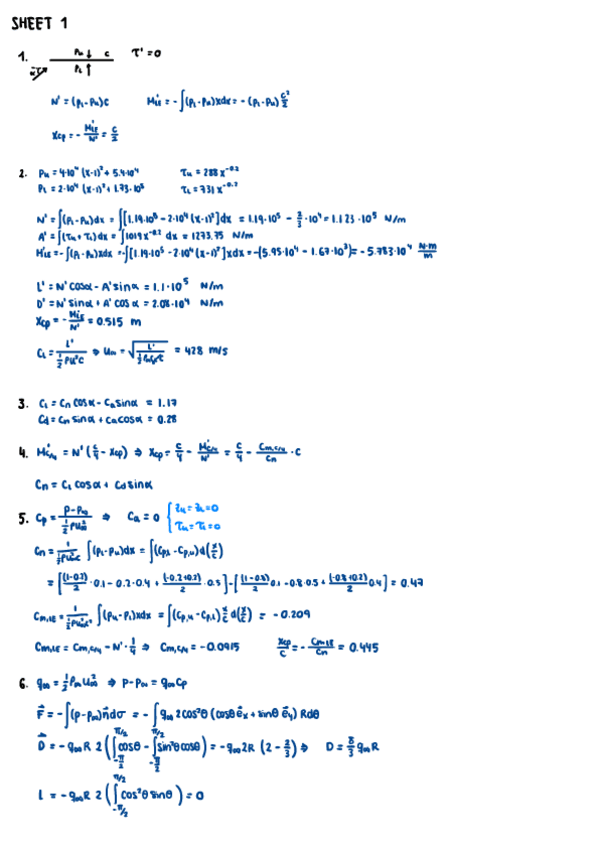 SHEET 1
1. Pu↓ c τ' = 0
PL↑
N' = (Pl - Pu)c M'LE = - ∫(Pl - Pu)xdx = - (Pl - Pu) c²/2
xcp = - M'LE/N' = c/2
2. Pu = 4·10⁴ (x-1)² + 5.4·10⁴ τu = 288 x^-0.2
Pl = 2·10⁴ (x-1)² + 1.73·10⁵ τl = 731 x^-0.2
N' = ∫(Pl - Pu)dx = ∫[1.19·10⁵ - 2·10⁴ (x-1)²]dx = 1.19·10⁵ - 2/3·10⁴ = 1.123·10⁵ N/m
A' = ∫(τu + τl)dx = ∫1019 x^-0.2 dx = 1273.75 N/m
M'LE = -∫(Pl - Pu)xdx = -∫[1.19·10⁵ - 2·10⁴ (x-1)²]xdx = -(5.95·10⁴ - 1.67·10³) = -5.783·10⁴ N·m/m
L' = N' cosα - A' sinα = 1.1·10⁵ N/m
D' = N' sinα + A' cosα = 2.08·10⁴ N/m
xcp = - M'LE/N' = 0.515 m
CL = L'/(½ρu²c) ⇒ u∞ = √(L'/(½ρ∞CLc)) = 428 m/s
3. CL = Cn cosα - Ca sinα = 1.17
Cd = Cn sinα + Ca cosα = 0.28
4. M'c/4 = N' (c/4 - xcp) ⇒ xcp = c/4 - M'c/4/N' = c/4 - Cm,c/4/Cn · c
Cn = CL cosα + Cd sinα
5. Cp = (P - P∞)/(½ρu∞²) ⇒ Ca = 0 { zu = zl = 0
τu = τl = 0
Cn = 1/(½ρu∞²c) ∫(Pl - Pu)dx = ∫(Cp,l - Cp,u)d(x/c)
= [(1-0.2)/2 · 0.1 - 0.2·0.4 + (-0.2+0.2)/2 · 0.5] - [(1-0.8)/2 0.1 - 0.8·0.5 + (-0.8+0.2)/2 0.4] = 0.47
Cm,LE = 1/(½ρu∞²c²) ∫(Pu - Pl)xdx = ∫(Cp,u - Cp,l) x/c d(x/c) = - 0.209
Cm,LE = Cm,c/4 - N'·1/4 ⇒ Cm,c/4 = -0.0915 xcp/c = - Cm,LE/Cn = 0.445
6. q∞ = ½ρ∞u∞² ⇒ P - P∞ = q∞ Cp
F⃗ = -∫(P - P∞)n⃗dσ = - ∫ q∞ 2cos²θ (cosθ e⃗x + sinθ e⃗y) Rdθ
D⃗ = - q∞R 2 (∫_{-π/2}^{π/2} cosθ - ∫_{-π/2}^{π/2} sin²θ cosθ) = - q∞2R (2 - 2/3) ⇒ D = 8/3 q∞R
L = - q∞R 2 (∫_{-π/2}^{π/2} cos²θ sinθ) = 0